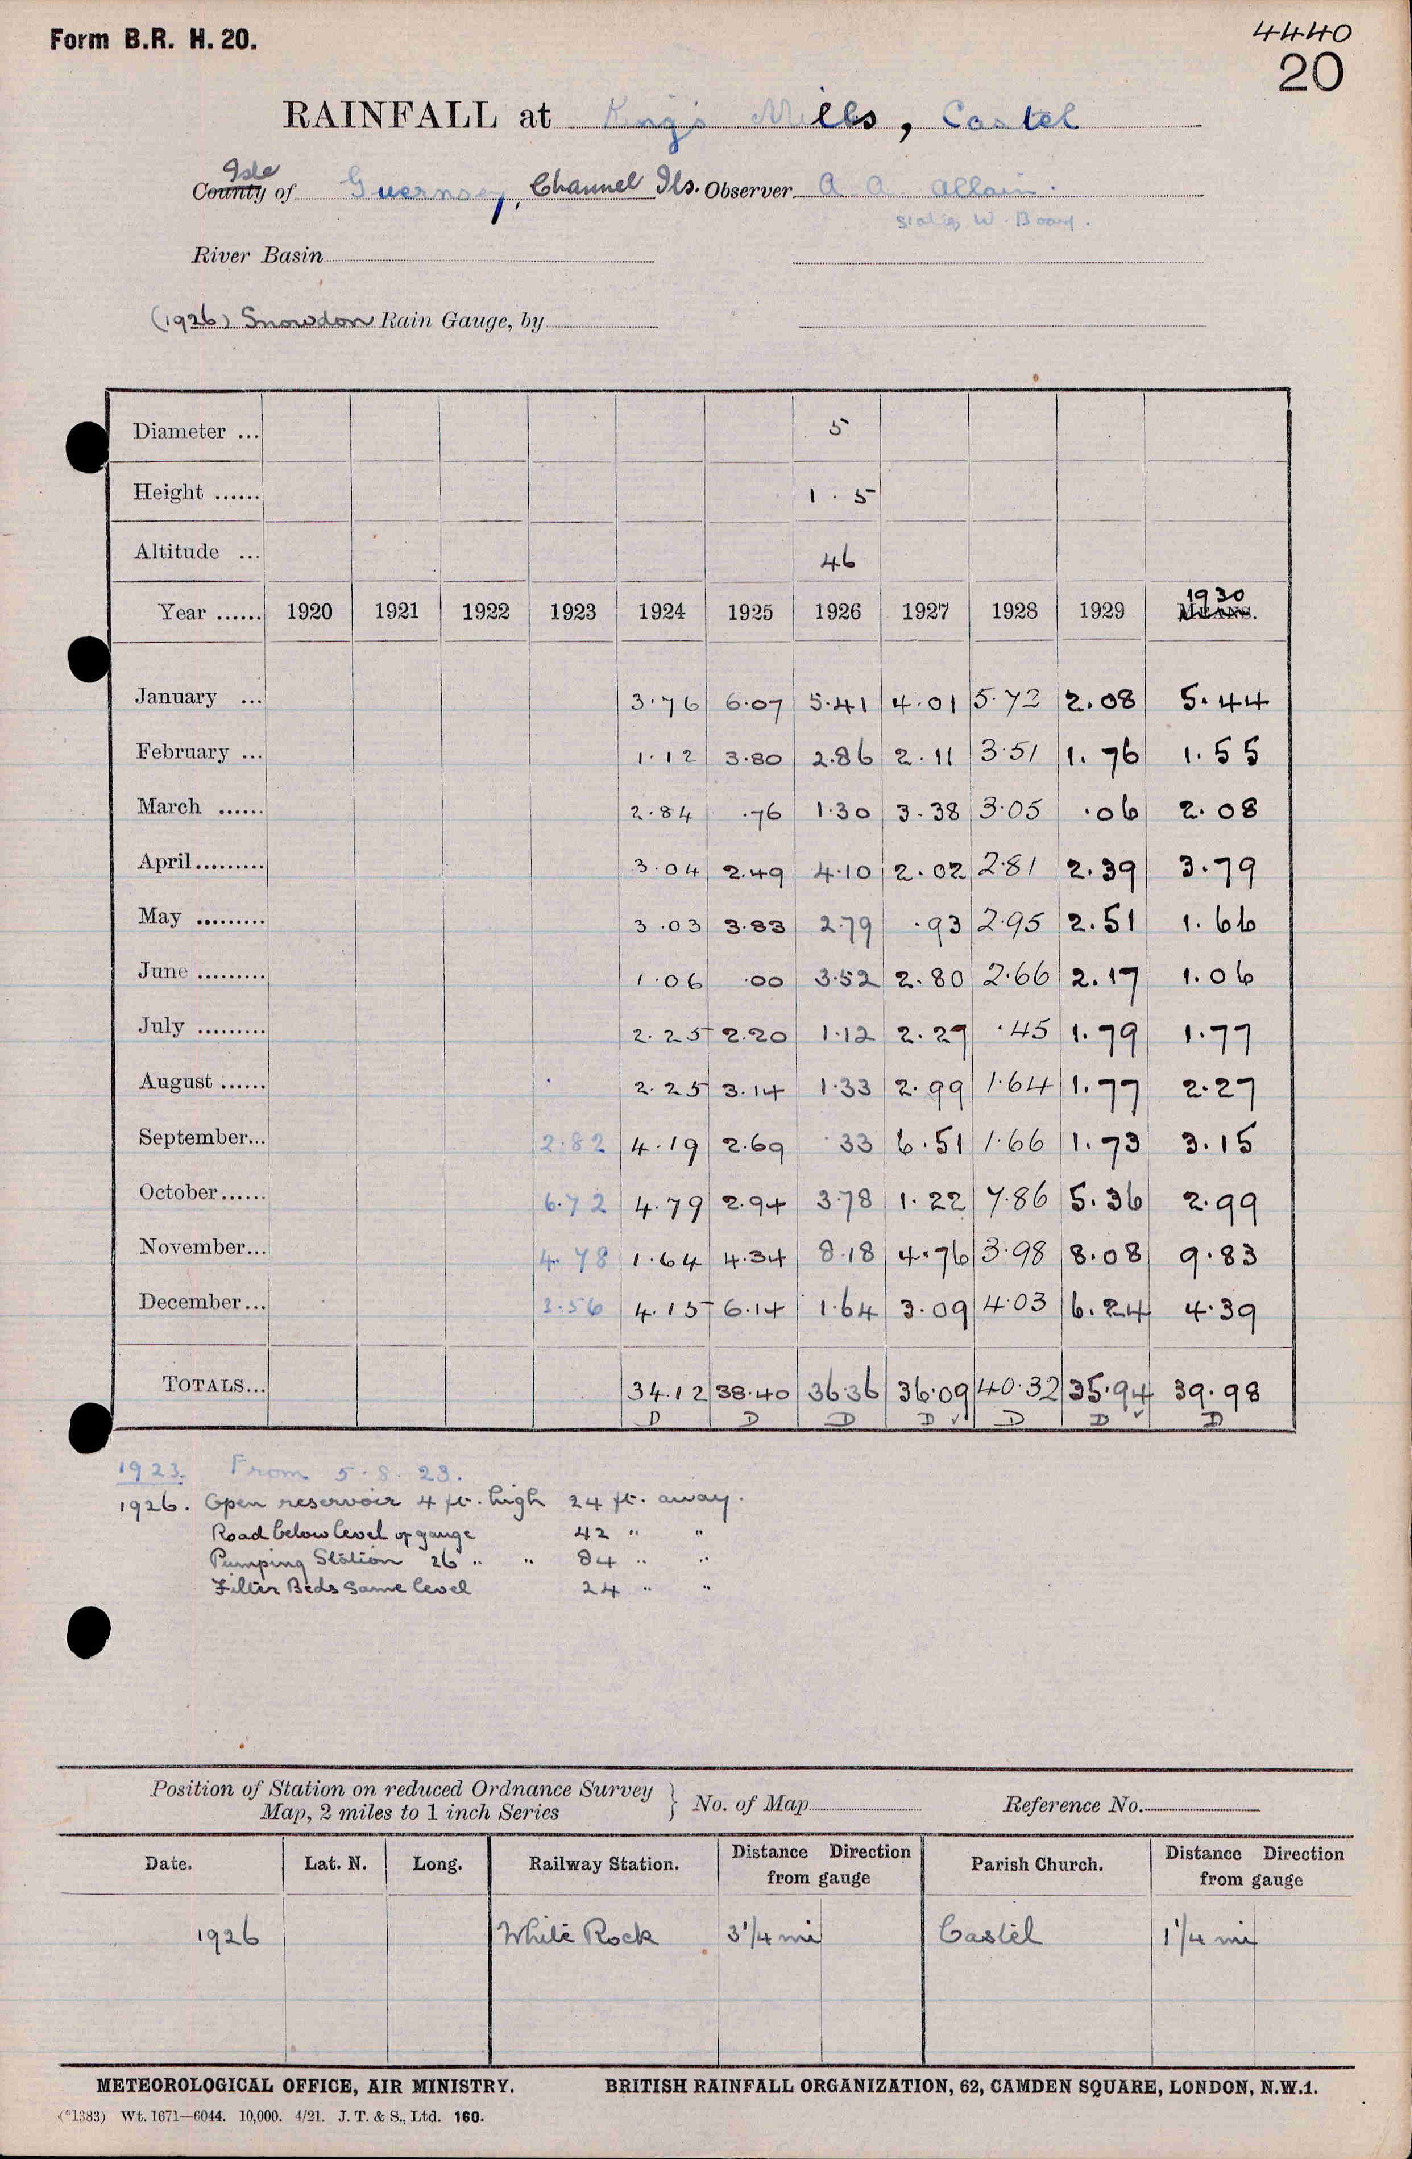 Form B.R. H. 20.
4440
20
RAINFALL at King's Mills, Castel
Isle
County of Guernsey, Channel Ils. Observer A A Allain.
States W. Board.
River Basin
(1926) Snowdon Rain Gauge, by
Diameter ... 5
Height ...... 1 . 5
Altitude ... 46
Year ...... 1920 1921 1922 1923 1924 1925 1926 1927 1928 1929 1930 MEANS.
January ... 3.76 6.07 5.41 4.01 5.72 2.08 5.44
February ... 1.12 3.80 2.86 2.11 3.51 1.76 1.55
March ...... 2.84 .76 1.30 3.38 3.05 .06 2.08
April......... 3.04 2.49 4.10 2.02 2.81 2.39 3.79
May ......... 3.03 3.83 2.79 .93 2.95 2.51 1.66
June ......... 1.06 .00 3.52 2.80 2.66 2.17 1.06
July ......... 2.25 2.20 1.12 2.27 .45 1.79 1.77
August ...... 2.25 3.14 1.33 2.99 1.64 1.77 2.27
September... 2.82 4.19 2.69 .33 6.51 1.66 1.73 3.15
October...... 6.72 4.79 2.94 3.78 1.22 7.86 5.36 2.99
November... 4.78 1.64 4.34 8.18 4.76 3.98 8.08 9.83
December... 3.56 4.15 6.14 1.64 3.09 4.03 6.24 4.39
TOTALS... 34.12 38.40 36.36 36.09 40.32 35.94 39.98
D D D D ✓ D D ✓ D
1923. From 5.8.23.
1926. Open reservoir 4 ft. high 24 ft. away.
Road below level of gauge 42 " "
Pumping Station 26 " " 84 " "
Filter Beds same level 24 " "
Position of Station on reduced Ordnance Survey
Map, 2 miles to 1 inch Series } No. of Map Reference No.
Date. Lat. N. Long. Railway Station. Distance Direction from gauge Parish Church. Distance Direction from gauge
1926 White Rock 3 1/4 mi Castel 1 1/4 mi
METEOROLOGICAL OFFICE, AIR MINISTRY. BRITISH RAINFALL ORGANIZATION, 62, CAMDEN SQUARE, LONDON, N.W.1.
(*1383) Wt. 1671—6044. 10,000. 4/21. J. T. & S., Ltd. 160.